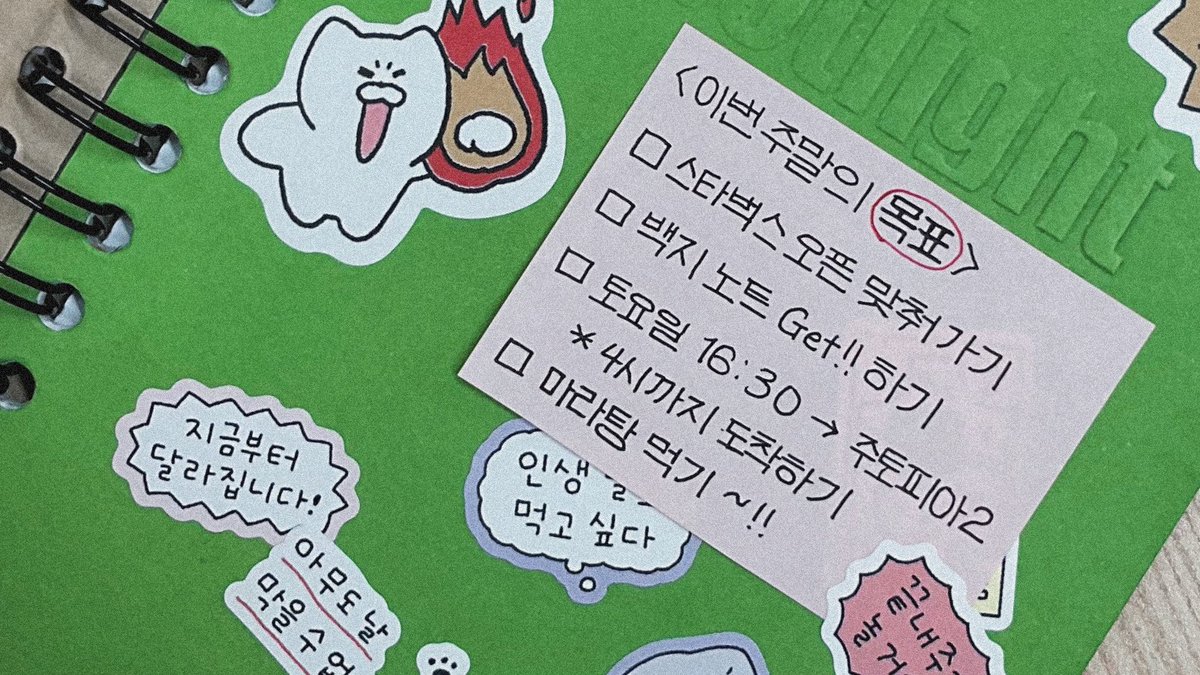 <이번 주말의 목표>
□ 스타벅스 오픈 맞춰 가기
□ 백지 노트 Get!! 하기
□ 토요일 16:30 → 주토피아2
* 4시까지 도착하기
□ 마라탕 먹기 ~!!
지금부터
달라집니다!
아무도 날
막을 수 없
인생
먹고 싶다
끝내주
놀 거